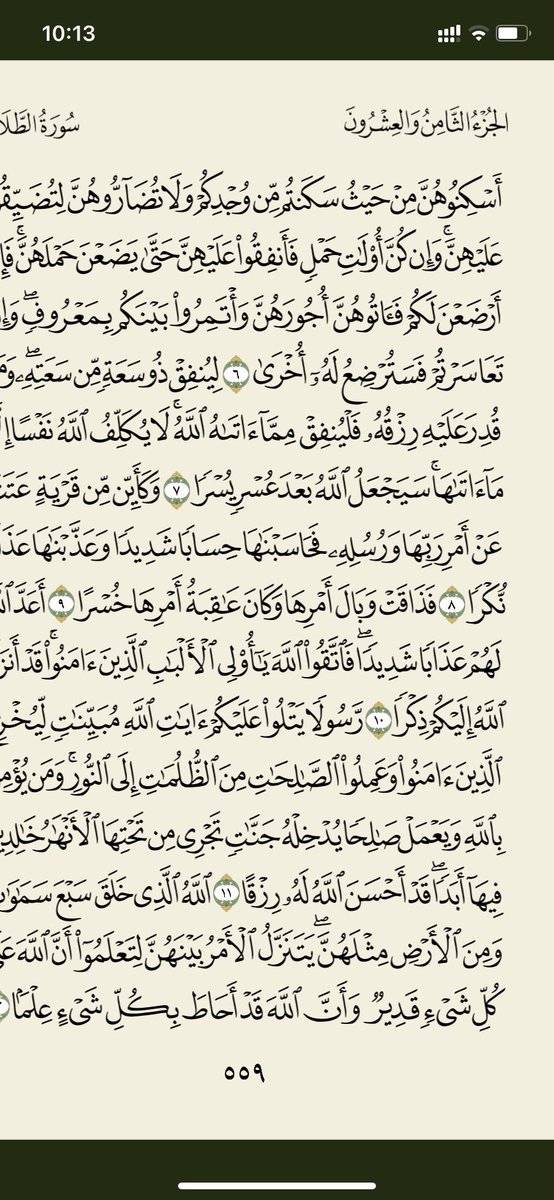 10:13
الجُزْءُ الثَّامِنُ وَالعِشْرُونَ سُورَةُ الطَّلَا
أَسْكِنُوهُنَّ مِنْ حَيْثُ سَكَنتُم مِّن وُجْدِكُمْ وَلَا تُضَآرُّوهُنَّ لِتُضَيِّقُ
عَلَيْهِنَّۚ وَإِن كُنَّ أُوْلَٰتِ حَمْلٍ فَأَنفِقُواْ عَلَيْهِنَّ حَتَّىٰ يَضَعْنَ حَمْلَهُنَّۚ فَإِ
أَرْضَعْنَ لَكُمْ فَـَٔاتُوهُنَّ أُجُورَهُنَّ وَأْتَمِرُواْ بَيْنَكُم بِمَعْرُوفٖۖ وَإِ
تَعَاسَرْتُمْ فَسَتُرْضِعُ لَهُۥٓ أُخْرَىٰ ٦ لِيُنفِقْ ذُو سَعَةٖ مِّن سَعَتِهِۦۖ وَمَ
قُدِرَ عَلَيْهِ رِزْقُهُۥ فَلْيُنفِقْ مِمَّآ ءَاتَىٰهُ ٱللَّهُۚ لَا يُكَلِّفُ ٱللَّهُ نَفْسًا إِلَّ
مَآ ءَاتَىٰهَاۚ سَيَجْعَلُ ٱللَّهُ بَعْدَ عُسْرٖ يُسْرٗا ٧ وَكَأَيِّن مِّن قَرْيَةٍ عَتَتْ
عَنْ أَمْرِ رَبِّهَا وَرُسُلِهِۦ فَحَاسَبْنَٰهَا حِسَابٗا شَدِيدٗا وَعَذَّبْنَٰهَا عَذَا
نُّكْرٗا ٨ فَذَاقَتْ وَبَالَ أَمْرِهَا وَكَانَ عَٰقِبَةُ أَمْرِهَا خُسْرًا ٩ أَعَدَّ ٱل
لَهُمْ عَذَابٗا شَدِيدٗاۖ فَٱتَّقُواْ ٱللَّهَ يَٰٓأُوْلِي ٱلْأَلْبَٰبِ ٱلَّذِينَ ءَامَنُواْۚ قَدْ أَنزَ
ٱللَّهُ إِلَيْكُمْ ذِكْرٗا ١٠ رَّسُولٗا يَتْلُواْ عَلَيْكُمْ ءَايَٰتِ ٱللَّهِ مُبَيِّنَٰتٖ لِّيُخْرِ
ٱلَّذِينَ ءَامَنُواْ وَعَمِلُواْ ٱلصَّٰلِحَٰتِ مِنَ ٱلظُّلُمَٰتِ إِلَى ٱلنُّورِۚ وَمَن يُؤْمِ
بِٱللَّهِ وَيَعْمَلْ صَٰلِحٗا يُدْخِلْهُ جَنَّٰتٖ تَجْرِي مِن تَحْتِهَا ٱلْأَنْهَٰرُ خَٰلِدِي
فِيهَآ أَبَدٗاۖ قَدْ أَحْسَنَ ٱللَّهُ لَهُۥ رِزْقًا ١١ ٱللَّهُ ٱلَّذِي خَلَقَ سَبْعَ سَمَٰوَٰ
وَمِنَ ٱلْأَرْضِ مِثْلَهُنَّۖ يَتَنَزَّلُ ٱلْأَمْرُ بَيْنَهُنَّ لِتَعْلَمُوٓاْ أَنَّ ٱللَّهَ عَلَ
كُلِّ شَيْءٖ قَدِيرٞ وَأَنَّ ٱللَّهَ قَدْ أَحَاطَ بِكُلِّ شَيْءٍ عِلْمَۢا
٥٥٩